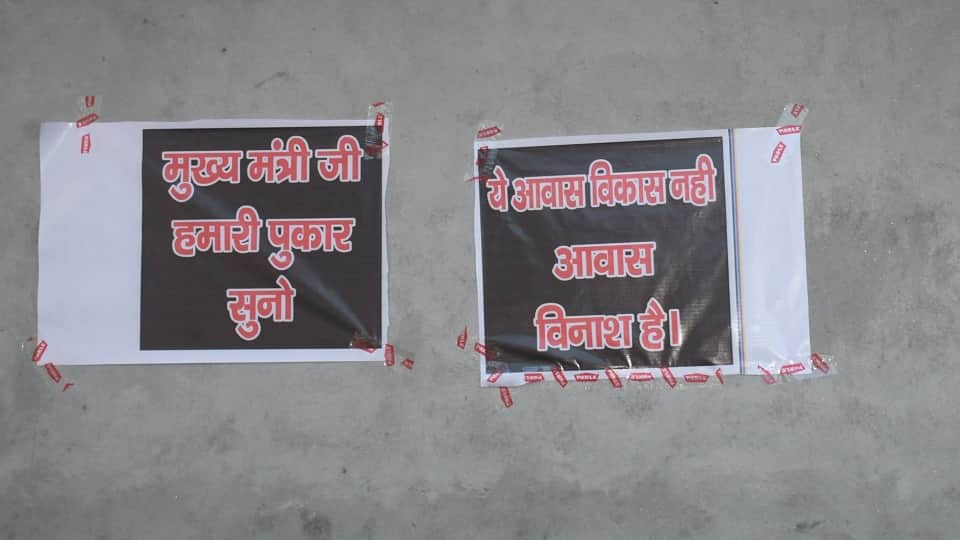 मुख्य मंत्री जी
हमारी पुकार
सुनो
ये आवास विकास नही
आवास
विनाश है।